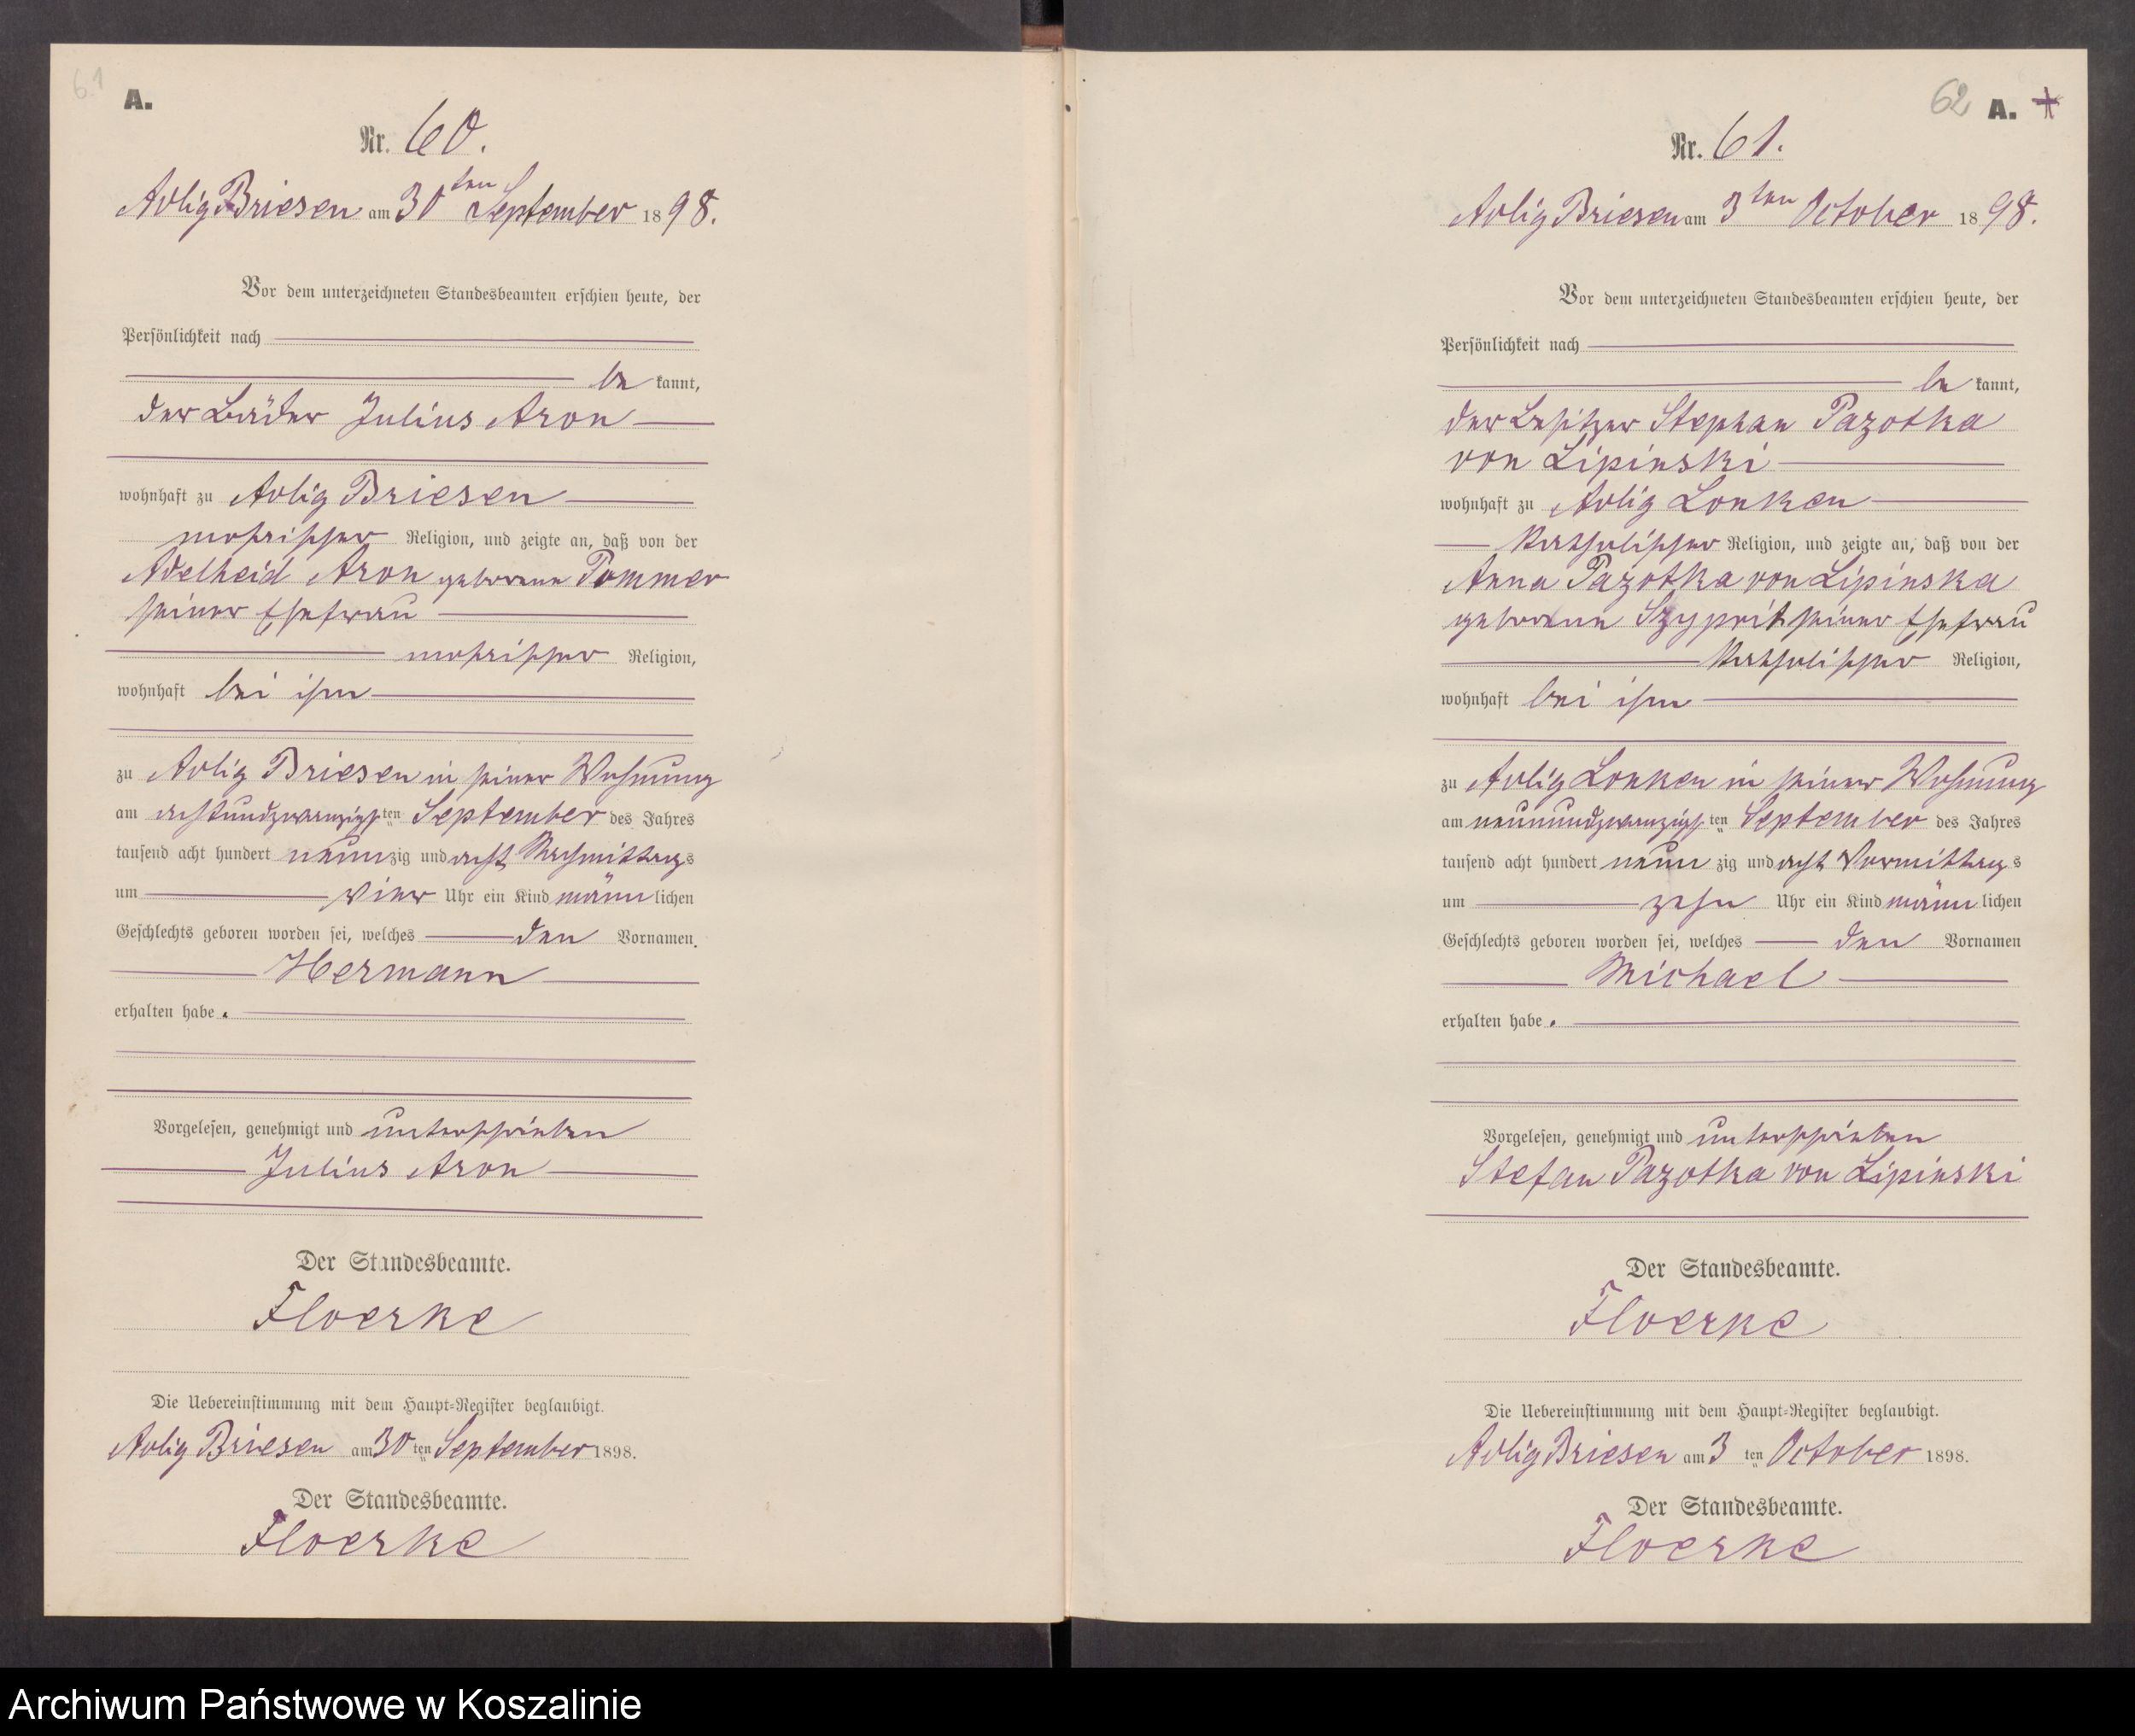 61
A.
Nr. 60.
Adlig Briesen am 30ten September 1898.
Vor dem unterzeichneten Standesbeamten erschien heute, der
Persönlichkeit nach
be kannt,
der Bäcker Julius Aron
wohnhaft zu Adlig Briesen
mosaischer Religion, und zeigte an, daß von der
Adelheid Aron geborene Pommer
seiner Ehefrau
mosaischer Religion,
wohnhaft bei ihm
zu Adlig Briesen in seiner Wohnung
am achtundzwanzigsten September des Jahres
tausend acht hundert neunzig und acht Nachmittags
um vier Uhr ein Kind männlichen
Geschlechts geboren worden sei, welches den Vornamen
Hermann
erhalten habe.
Vorgelesen, genehmigt und unterschrieben
Julius Aron
Der Standesbeamte.
Floerke
Die Uebereinstimmung mit dem Haupt-Register beglaubigt.
Adlig Briesen am 30ten September 1898.
Der Standesbeamte.
Floerke
62 A.
Nr. 61.
Adlig Briesen am 3ten October 1898.
Vor dem unterzeichneten Standesbeamten erschien heute, der
Persönlichkeit nach
be kannt,
der Besitzer Stephan Pazotka
von Lipinski
wohnhaft zu Adlig Lonken
katholischer Religion, und zeigte an, daß von der
Anna Pazotka von Lipinska
geborene Szyprit seiner Ehefrau
katholischer Religion,
wohnhaft bei ihm
zu Adlig Lonken in seiner Wohnung
am neunundzwanzigsten September des Jahres
tausend acht hundert neun zig und acht Vormittags
um zehn Uhr ein Kind männlichen
Geschlechts geboren worden sei, welches den Vornamen
Michael
erhalten habe.
Vorgelesen, genehmigt und unterschrieben
Stefan Pazotka von Lipinski
Der Standesbeamte.
Floerke
Die Uebereinstimmung mit dem Haupt-Register beglaubigt.
Adlig Briesen am 3ten October 1898.
Der Standesbeamte.
Floerke
Archiwum Państwowe w Koszalinie